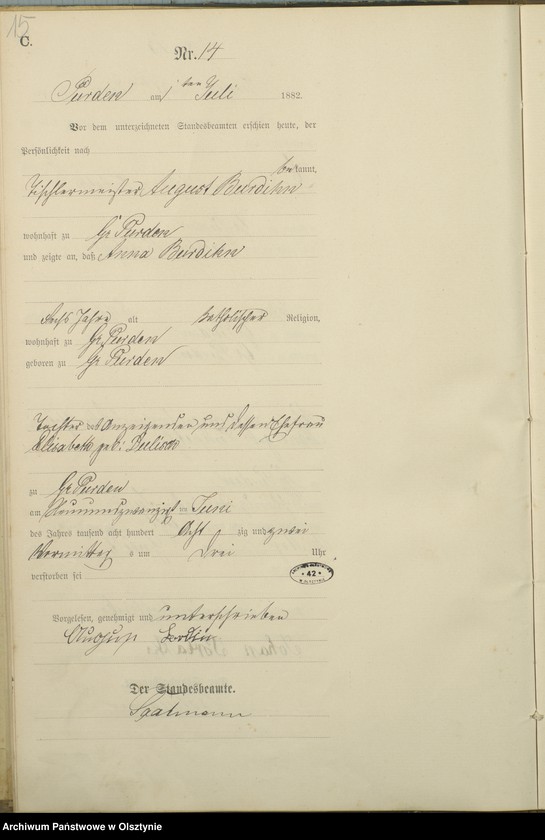 15
C.
Nr. 14
Purden am 1 ten Juli 1882.
Vor dem unterzeichneten Standesbeamten erschien heute, der
Persönlichkeit nach
bekannt,
Tischlermeister August Burdihn
wohnhaft zu Gr Purden
und zeigte an, daß Anna Burdihn
sechs Jahre alt katholischer Religion,
wohnhaft zu Gr. Purden
geboren zu Gr Purden
Tochter des Anzeigenden und dessen Ehefrau
Elisabeth geb:
zu Gr Purden
am Neunundzwanzigst ten Juni
des Jahres tausend acht hundert Acht zig und zwei
Vormittags um Drei Uhr
verstorben sei
42
Vorgelesen, genehmigt und unterschrieben
August
Der Standesbeamte.
Saalmann
Archiwum Państwowe w Olsztynie